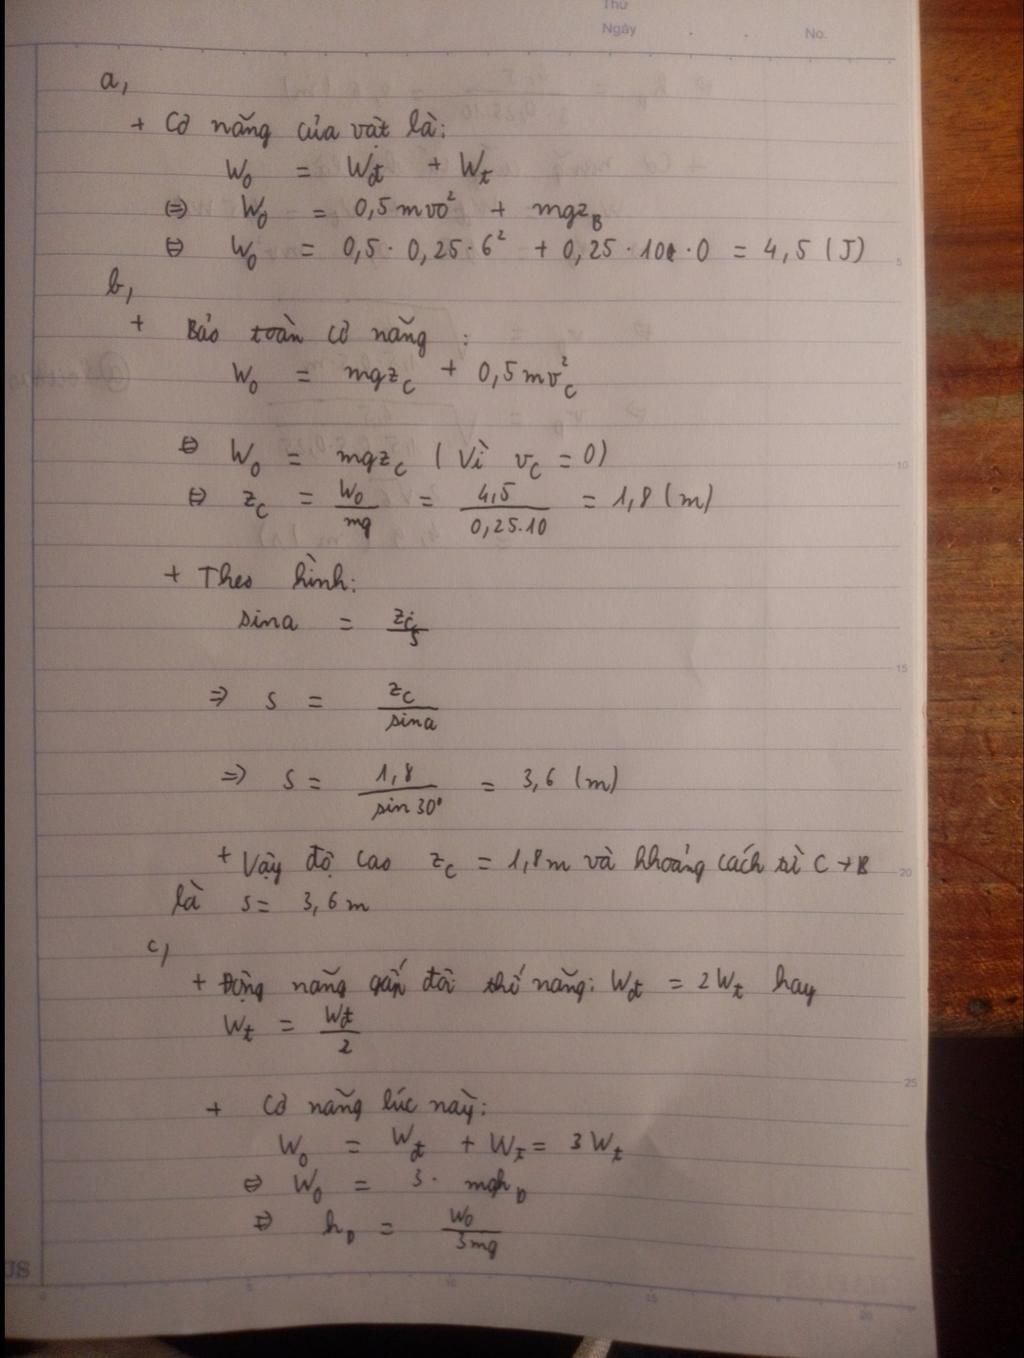 Thứ
Ngày . . No.
a,
+ Cơ năng của vật là:
W₀ = Wđ + Wt
⇔ W₀ = 0,5mv₀² + mgz_B
⇔ W₀ = 0,5 · 0,25 · 6² + 0,25 · 10 · 0 = 4,5 (J)
b,
+ Bảo toàn cơ năng :
W₀ = mgz_C + 0,5mv_C²
⇔ W₀ = mgz_C (Vì v_C = 0)
⇔ z_C = W₀/mg = 4,5/0,25.10 = 1,8 (m)
+ Theo hình:
sina = z_C/s
⇒ s = z_C/sina
⇒ s = 1,8/sin30° = 3,6 (m)
+ Vậy độ cao z_C = 1,8m và khoảng cách từ C → B
là s = 3,6m
c,
+ Động năng gấp đôi thế năng: Wđ = 2Wt hay
Wt = Wđ/2
+ Cơ năng lúc này:
W₀ = Wđ + Wt = 3Wt
⇔ W₀ = 3 · mgh_D
⇒ h_D = W₀/3mg